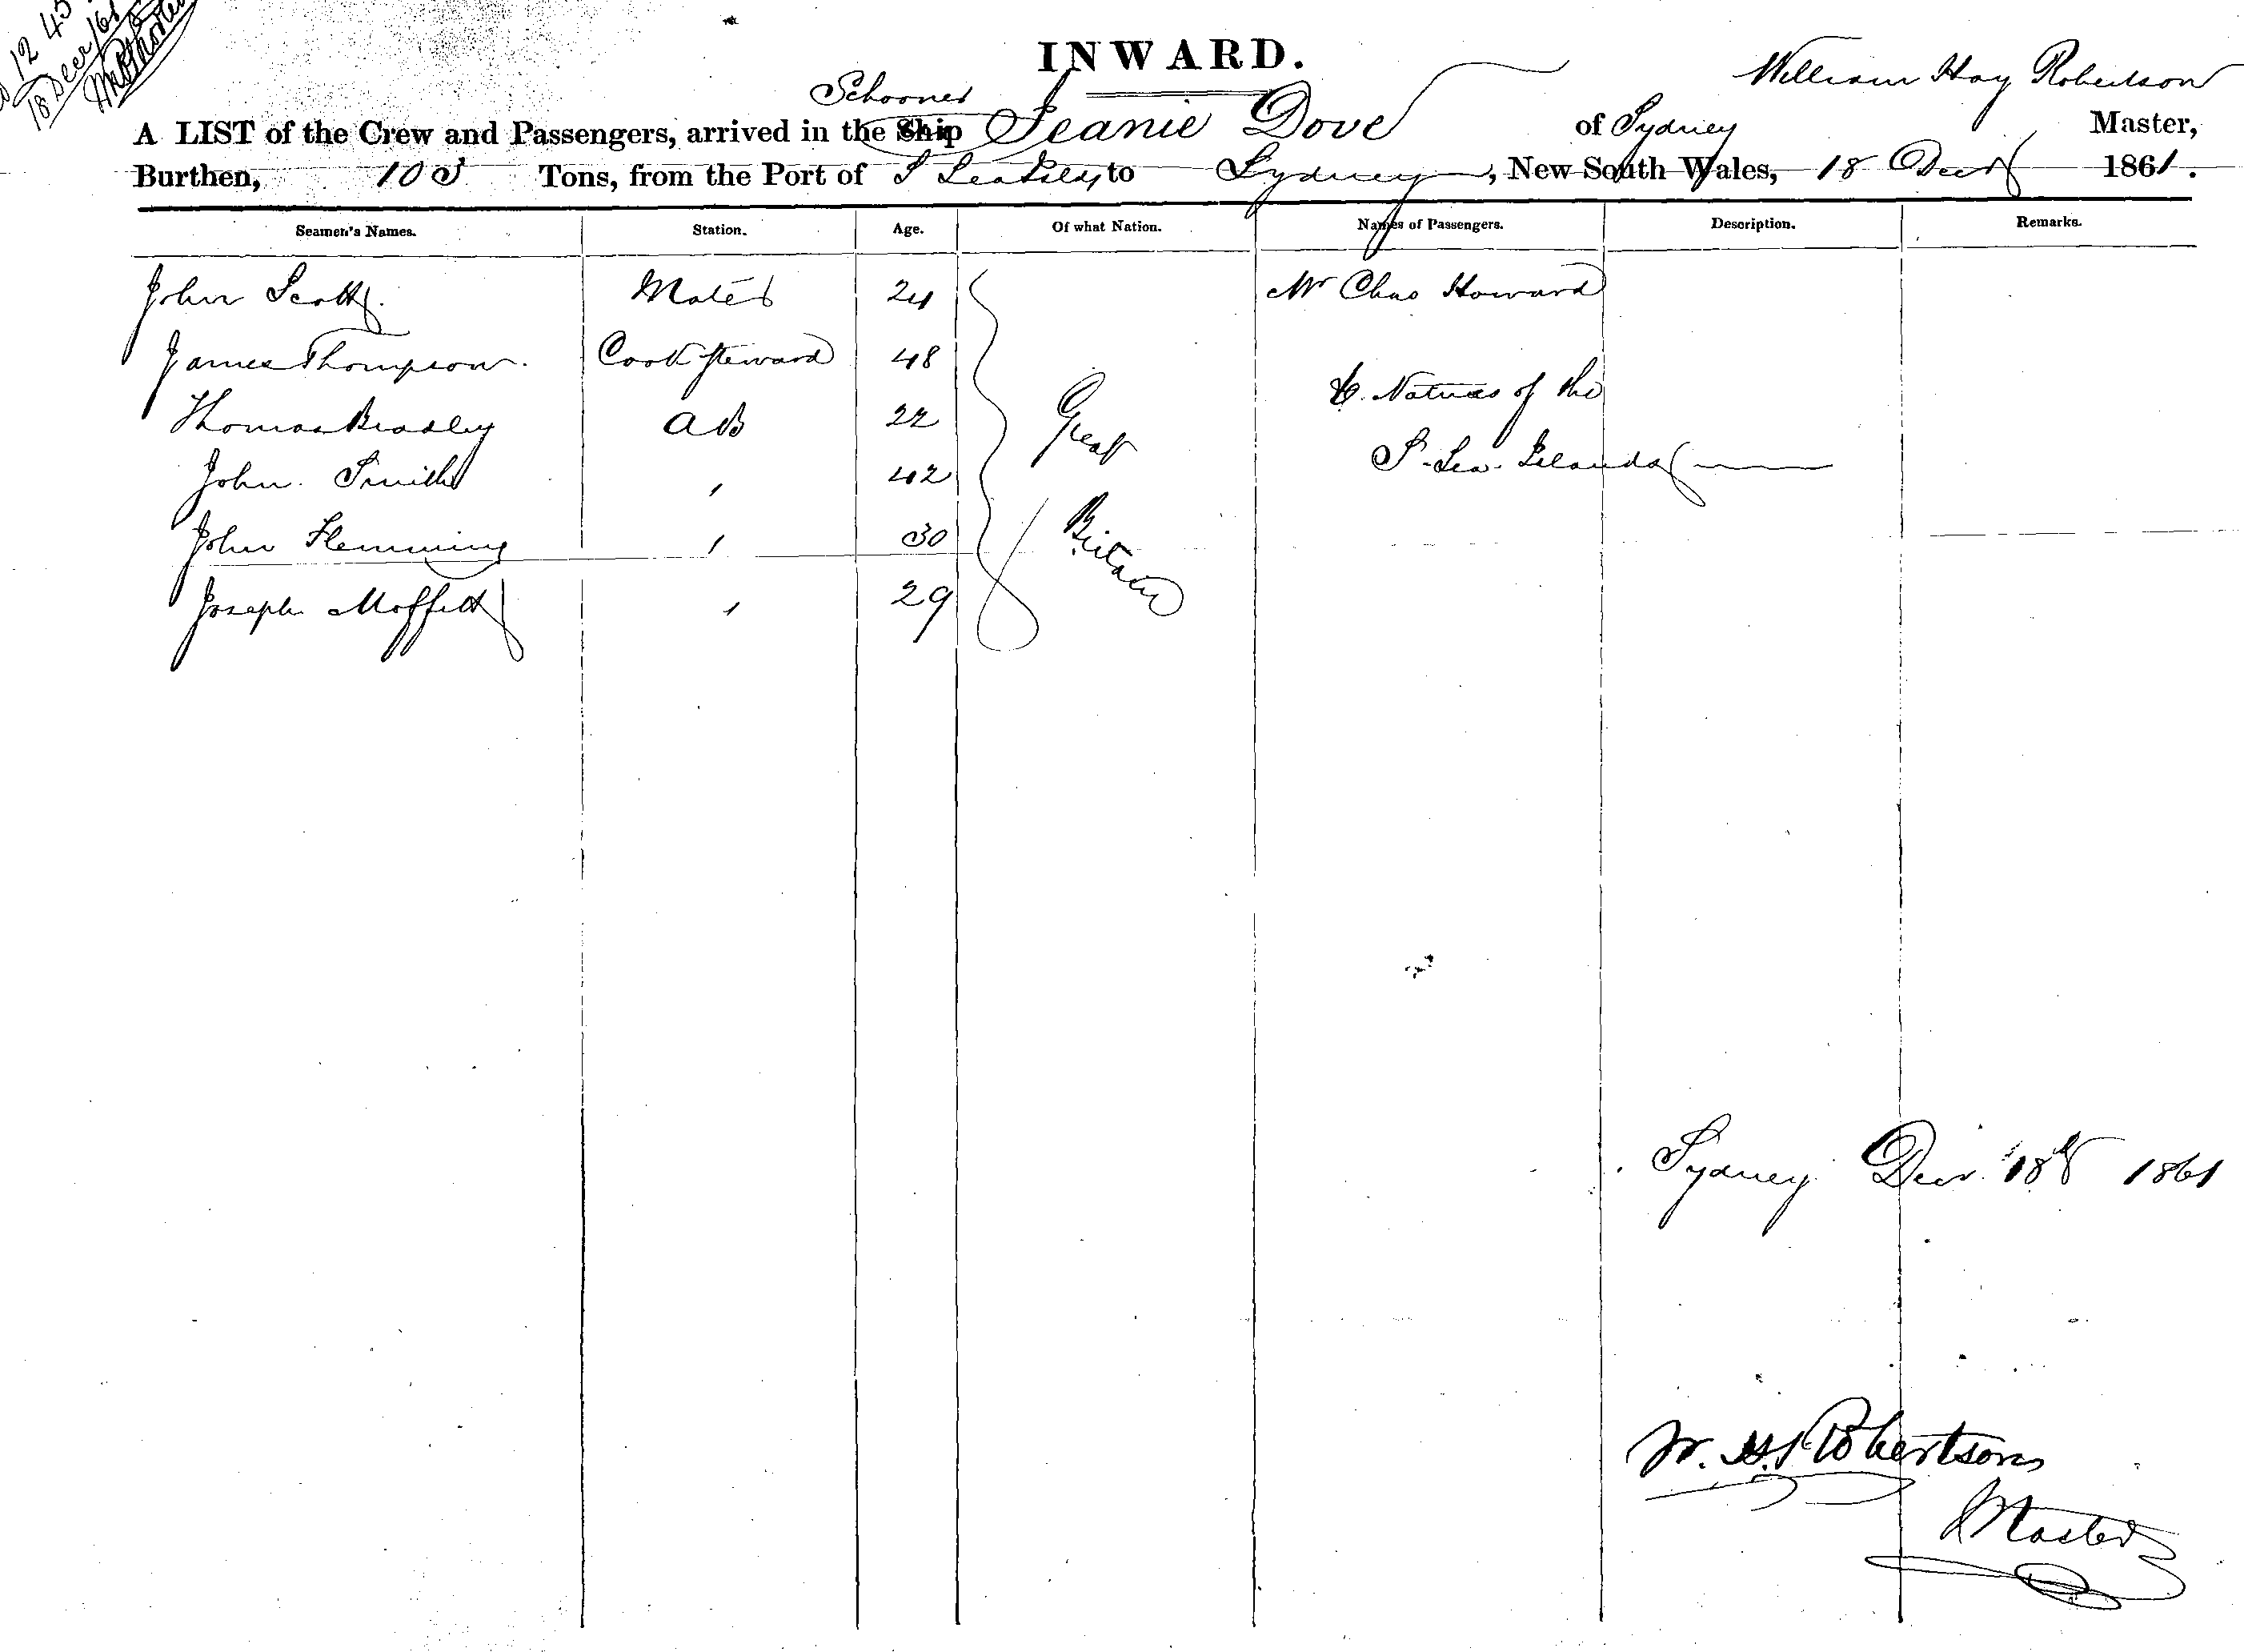 12 45
18 Decr /61
INWARD.
William Hay Robertson
Schooner
A LIST of the Crew and Passengers, arrived in the Ship Jeanie Dove of Sydney Master,
Burthen, 103 Tons, from the Port of S Sea Ilds to Sydney, New South Wales, 18 Decr 1861.
Seamen's Names. Station. Age. Of what Nation. Names of Passengers. Description. Remarks.
John Scott Mate 24 Mr Chas Howard
James Thompson. Cook Steward 48
Thomas Bradley AB 22 Great Natives of the
John Smith " 42 S. Sea Islands
John Flemming " 30 Britain
Joseph Moffett " 29
Sydney Decr 18th 1861
W. H. Robertson
Master